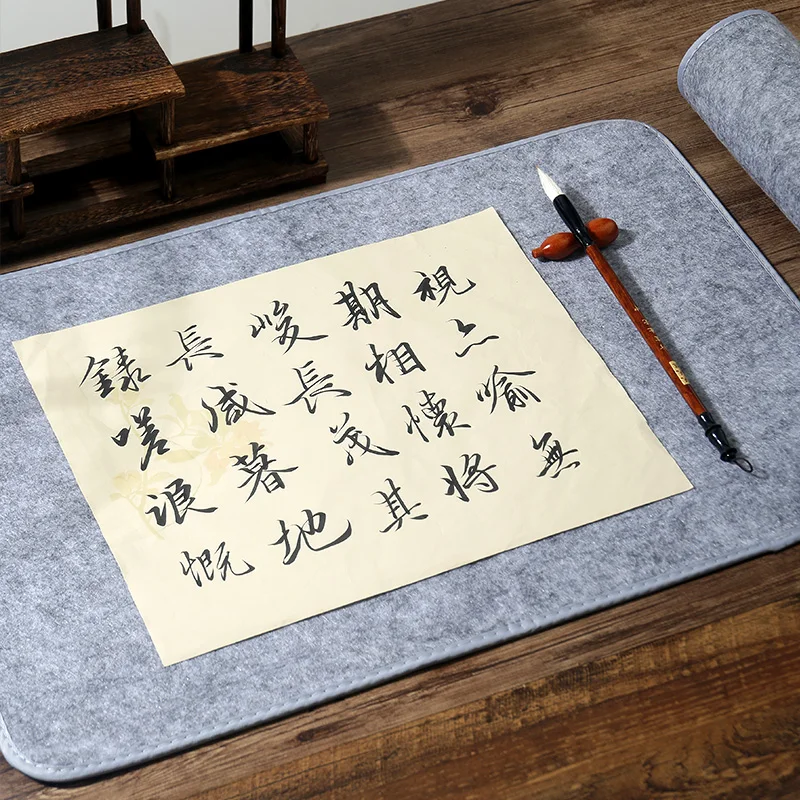 視亦喻無
期相懷將
峻長茂其
長咸暮地
録嗟浪慨